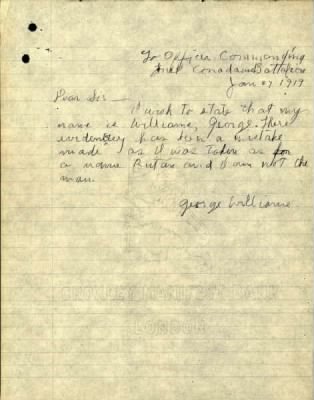 To Officer Commanding
Canadian Battalion
Jan 27 1919
Dear Sir
I wish to state that my
name is Williams, George. There
evidently has been a mistake
made as it was taken as for
a name and I am not the
man.
George Williams.
LONDON